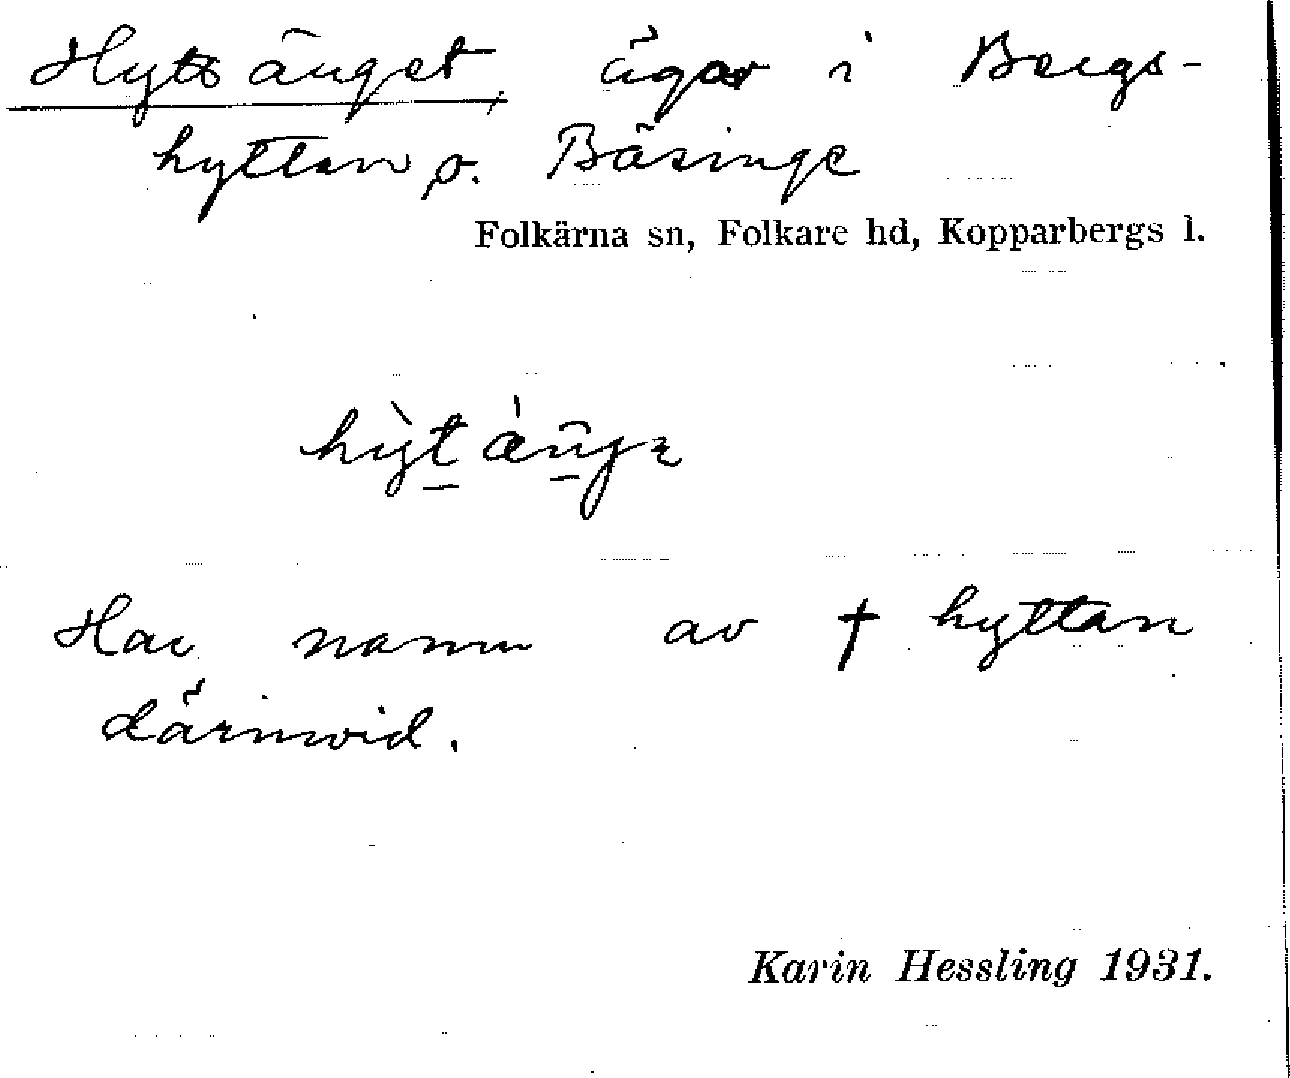 Hyttänget, ägor i Bergs-
hyttan o. Bäsinge
Folkärna sn, Folkare hd, Kopparbergs l.
Har namn av † hyttan
därinvid.
Karin Hessling 1931.